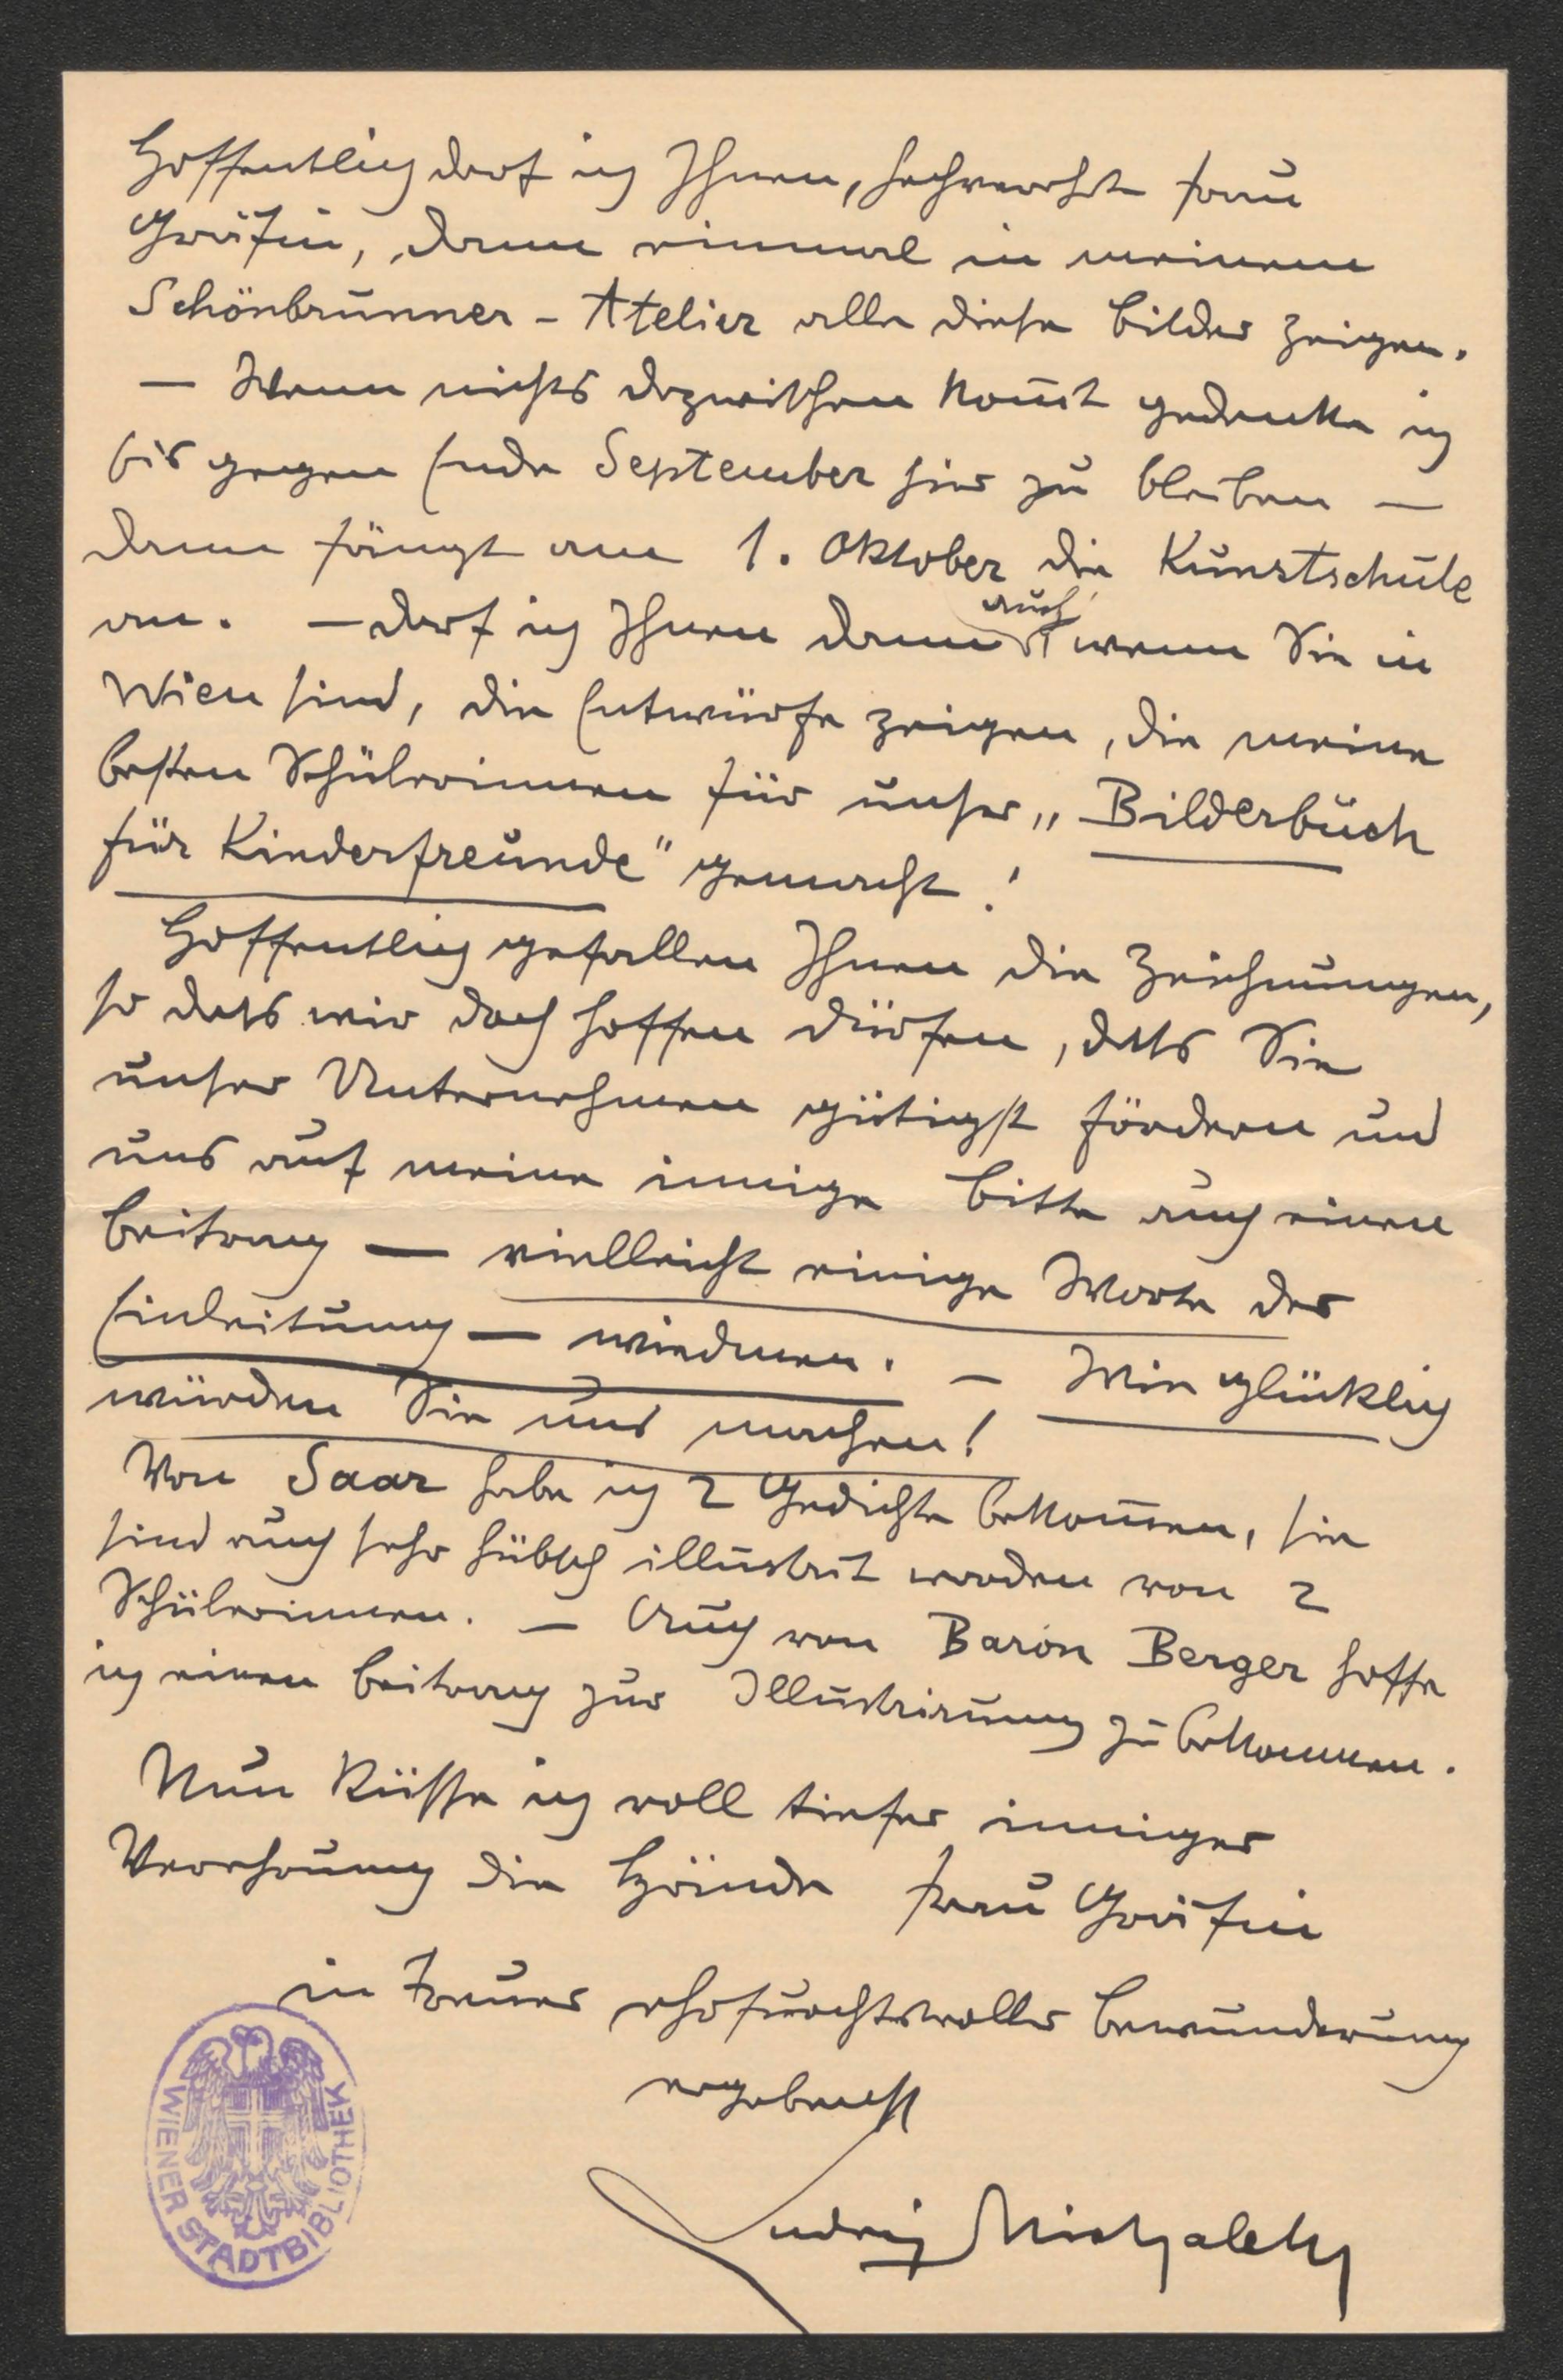 Hoffentlich darf ich Ihnen, hochverehrte Frau
Gräfin, dann einmal in meinem
Schönbrunner - Atelier alle diese Bilder zeigen.
— Wenn nichts dazwischen kom̅t gedenke ich
bis gegen Ende September hier zu bleiben —
dann fängt am 1. Oktober die Kunstschule
an. — Darf ich Ihnen dann auch wenn Sie in
Wien sind, die Entwürfe zeigen, die meine
besten Schülerinnen für unser „Bilderbuch
für Kinderfreunde" gemacht!
Hoffentlich gefallen Ihnen die Zeichnungen,
so dass wir doch hoffen dürfen, dass Sie
unser Unternehmen gütigst fördern und
uns auf meine innige Bitte auch einen
Beitrag — vielleicht einige Worte der
Einleitung — wiedmen. — Wie glücklich
würden Sie uns machen!
Von Saar habe ich 2 Gedichte bekom̅en, sie
sind auch sehr hübsch illustrirt worden von 2
Schülerinnen. — Auch von Baron Berger hoffe
ich einen Beitrag zur Illustrirung zu bekommen.
Nun küsse ich voll tiefer inniger
Verehrung die Hände Frau Gräfin
in treuer ehrfurchtsvoller Bewunderung
ergebenst
Ludwig Michalek
WIENER STADTBIBLIOTHEK